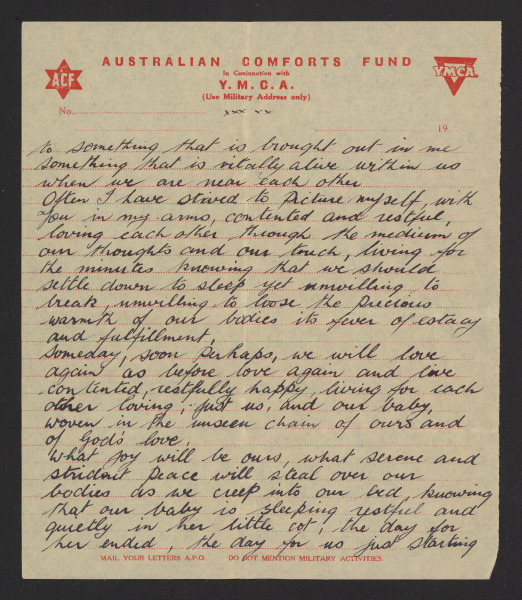 AUSTRALIAN COMFORTS FUND
In Conjunction with
Y. M. C. A.
(Use Military Address only)
ACF
YMCA
No.
xxx xx
19
to something that is brought out in me
something that is vitally alive within us
when we are near each other
Often I have stoved to picture myself, with
you in my arms, contented and restful,
loving each other through the medium of
our thoughts and our touch, living for
the minutes knowing that we should
settle down to sleep yet unwilling to
break, unwilling to loose the precious
warmth of our bodies its fever of estacy
and fulfillment,
someday, soon perhaps, we will love
again as before love again and live
contented, restfully happy, living for each
other loving, just us, and our baby,
woven in the unseen chain of ours and
of God's love.
What joy will be ours, what serene and
strident peace will steal over our
bodies as we creep into our bed, knowing
that our baby is sleeping restful and
quietly in her little cot, the day for
her ended, the day for us just starting
MAIL YOUR LETTERS A.P.O. DO NOT MENTION MILITARY ACTIVITIES.